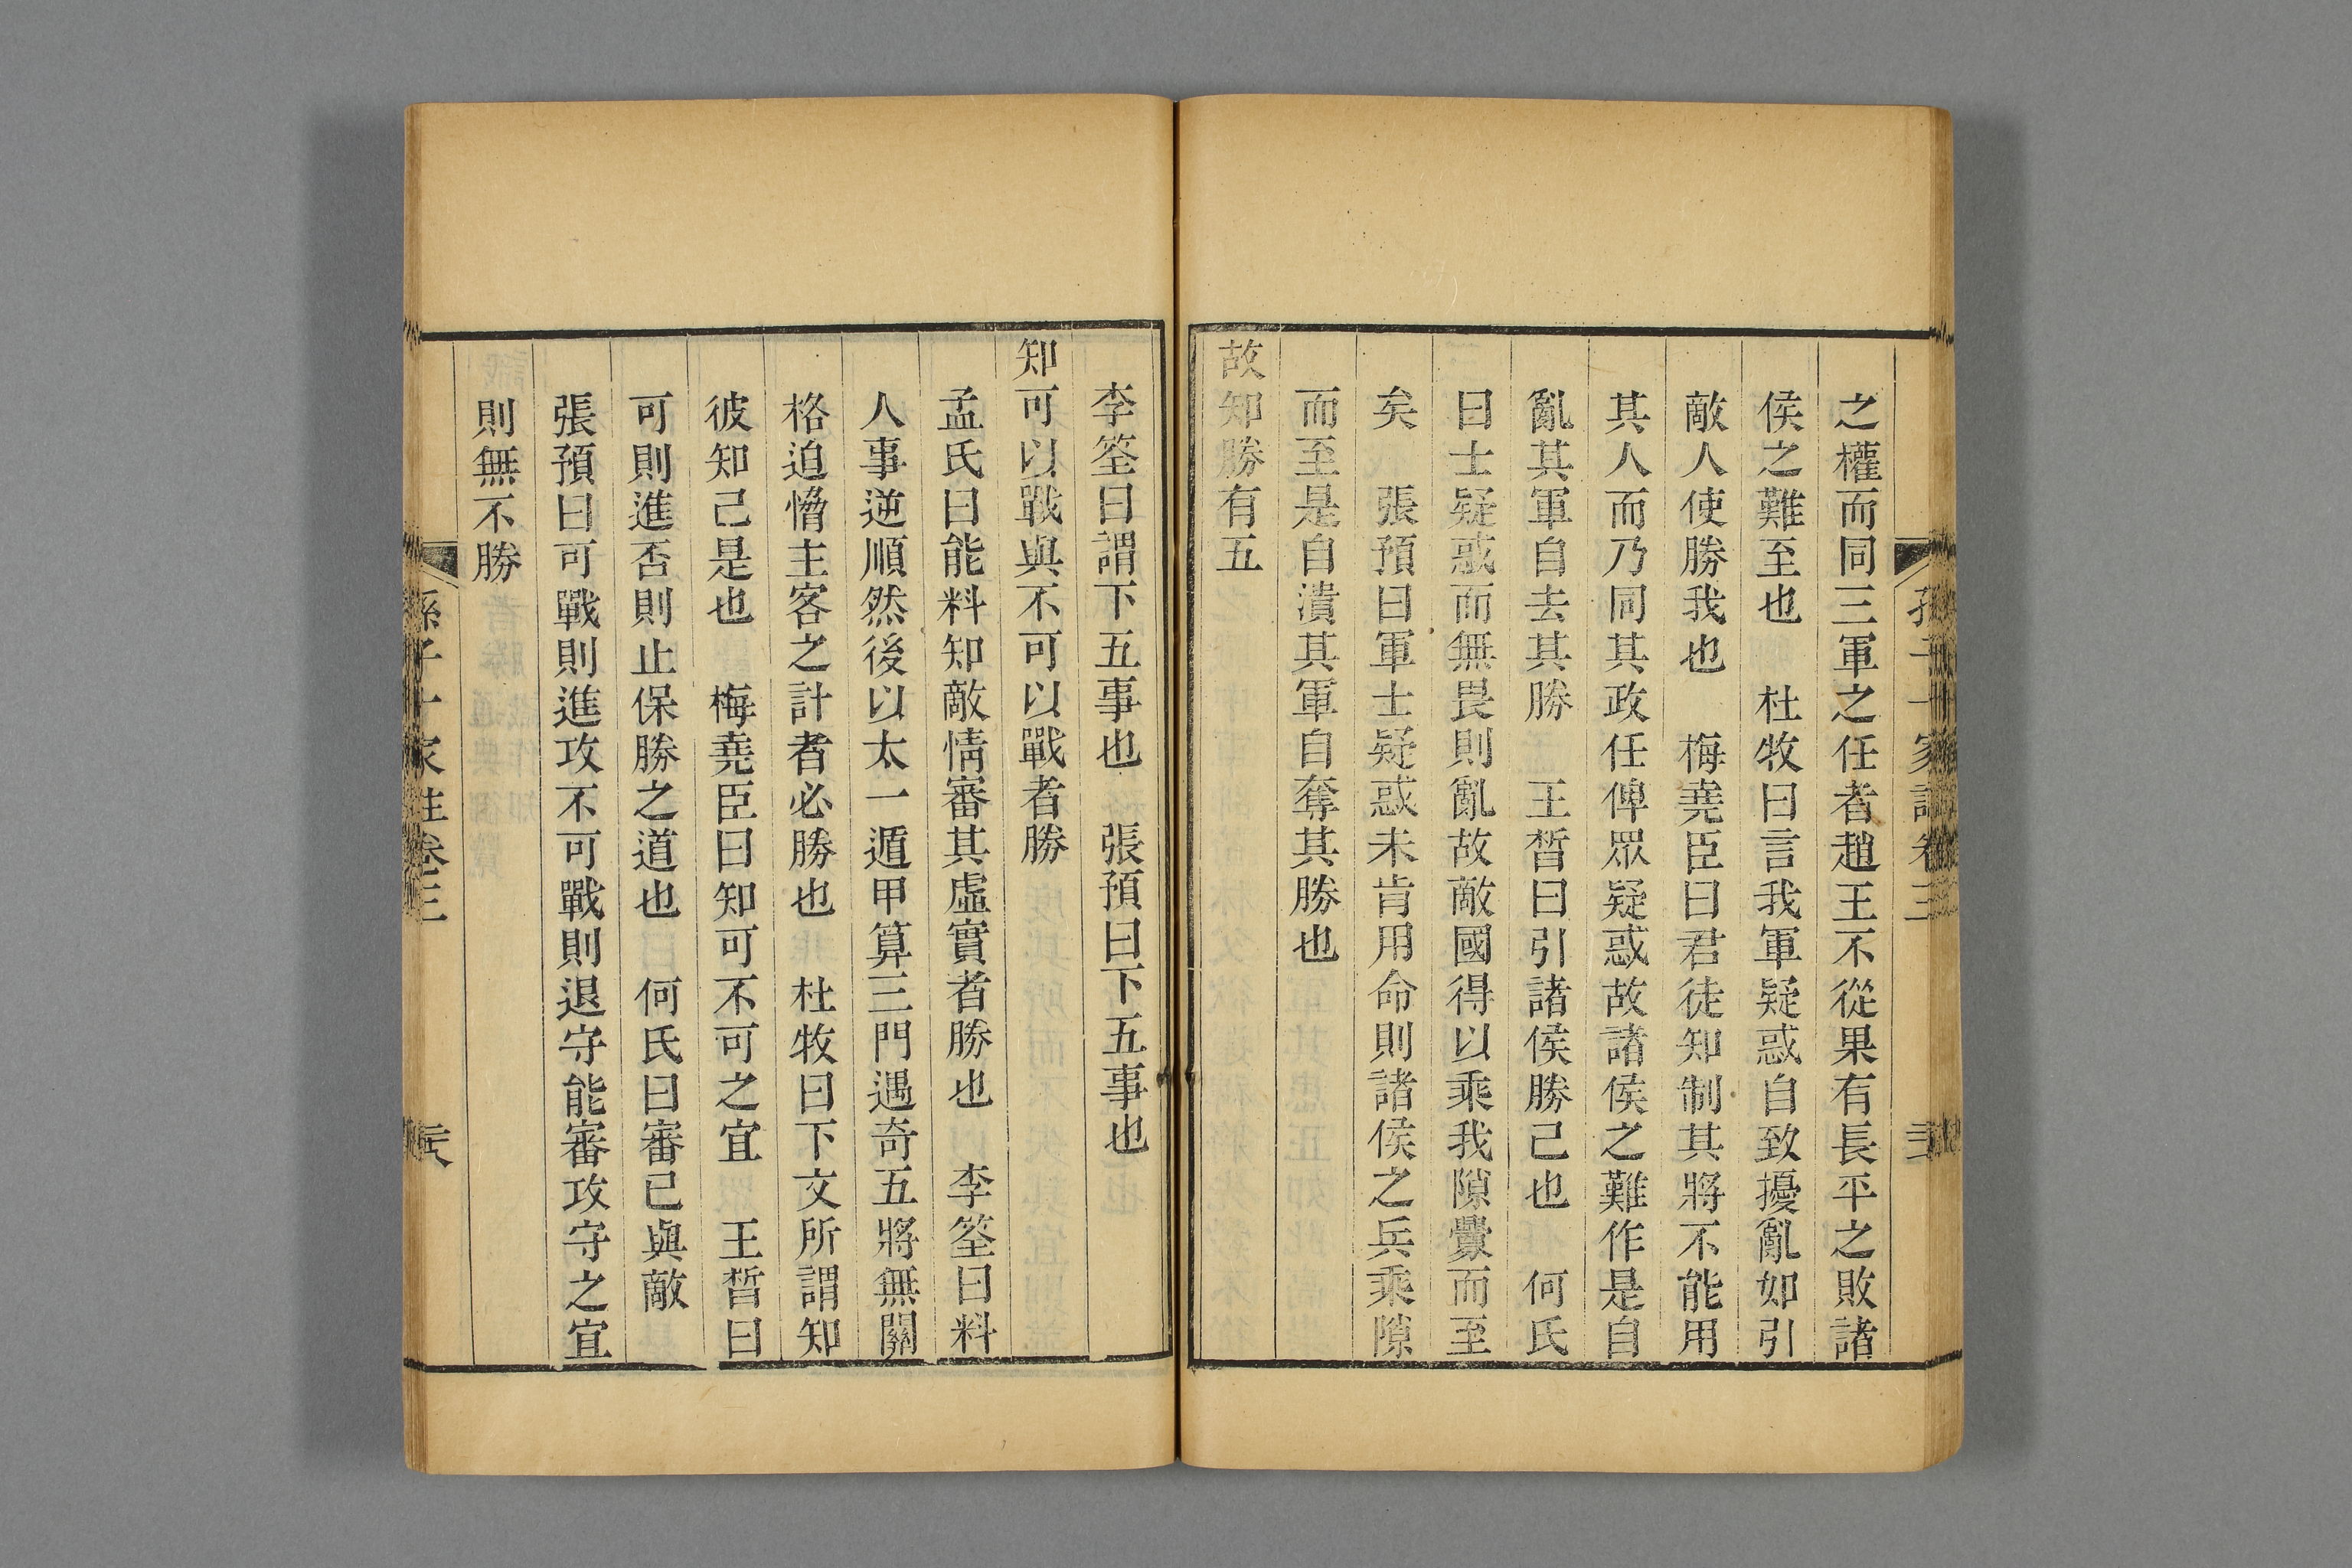 之權而同三軍之任者趙王不從果有長平之敗諸
侯之難至也　杜牧曰言我軍疑惑自致擾亂如引
敵人使勝我也　梅堯臣曰君徒知制其將不能用
其人而乃同其政任俾眾疑惑故諸侯之難作是自
亂其軍自去其勝　王晳曰引諸侯勝己也　何氏
曰士疑惑而無畏則亂故敵國得以乘我隙釁而至
矣　張預曰軍士疑惑未肯用命則諸侯之兵乘隙
而至是自潰其軍自奪其勝也
故知勝有五
李筌曰謂下五事也　張預曰下五事也
知可以戰與不可以戰者勝
孟氏曰能料知敵情審其虛實者勝也　李筌曰料
人事逆順然後以太一遁甲算三門遇奇五將無關
格迫憯主客之計者必勝也　杜牧曰下文所謂知
彼知己是也　梅堯臣曰知可不可之宜　王晳曰
可則進否則止保勝之道也　何氏曰審己與敵
張預曰可戰則進攻不可戰則退守能審攻守之宜
則無不勝
孫子十家註卷三